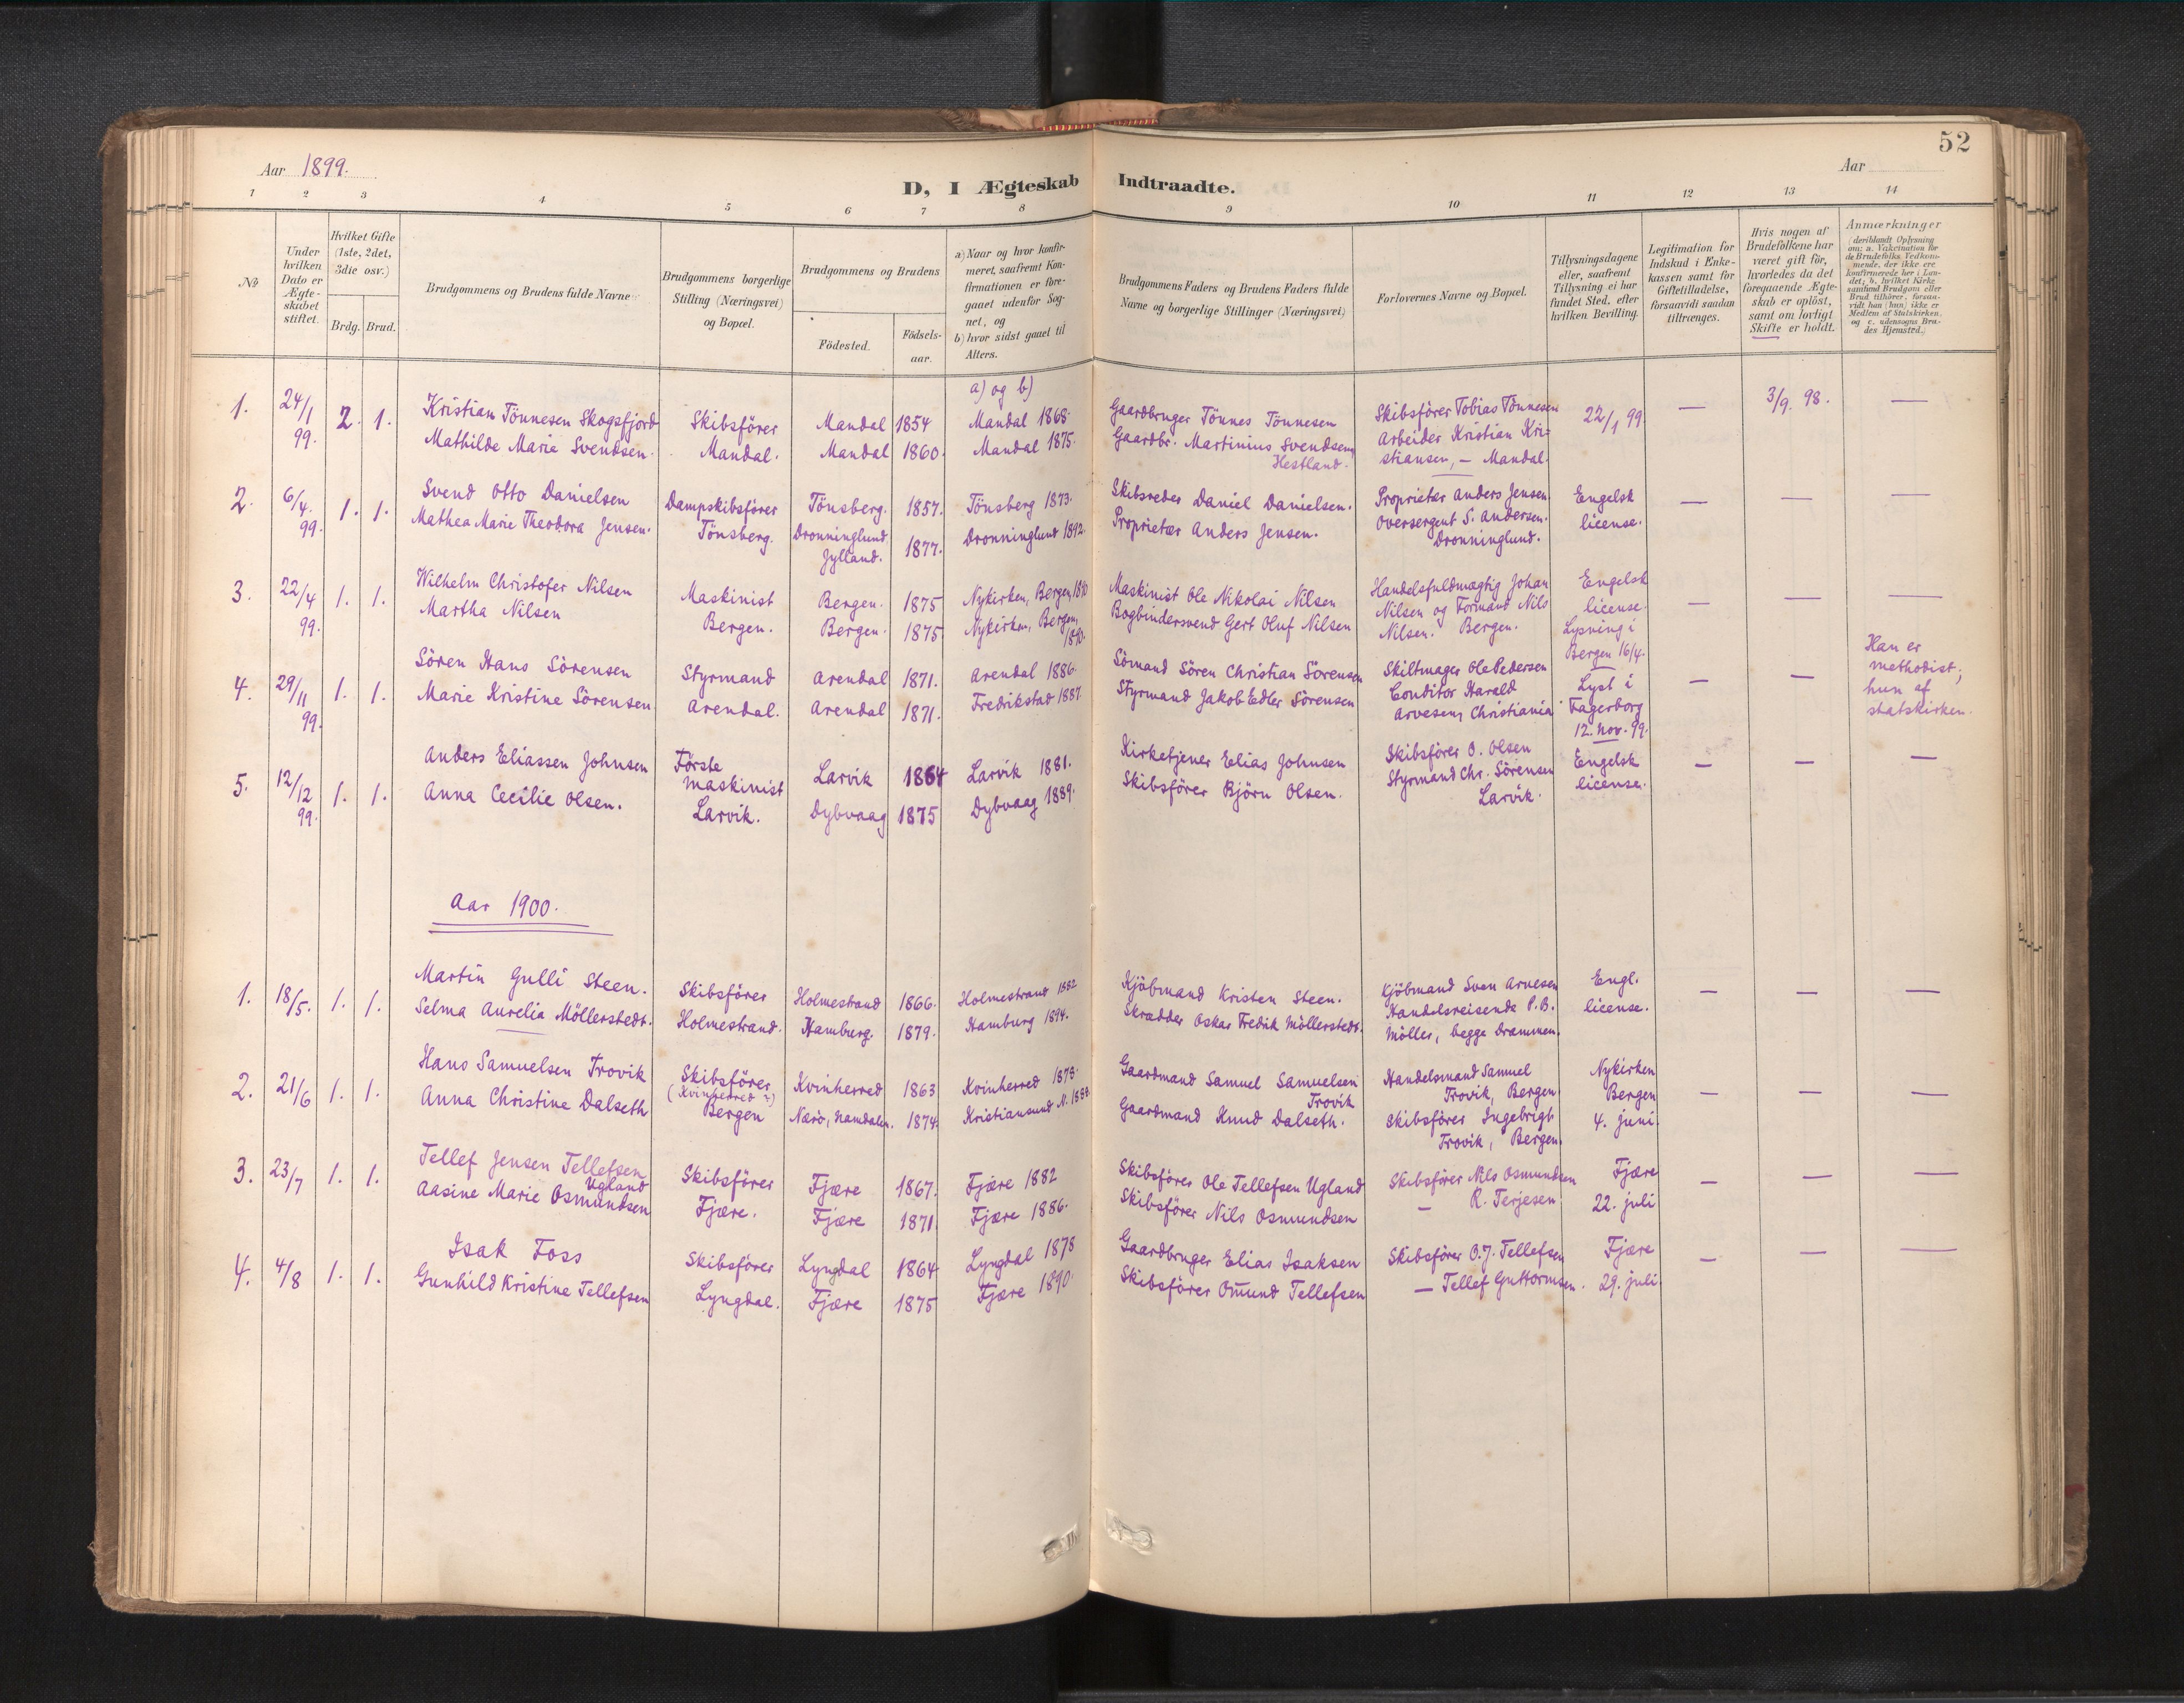 52
Aar 1899.
Aar
D, I Ægteskab Indtraadte.
1 2 3 4 5 6 7 8 9 10 11 12 13 14
No
Under hvilken Dato er Ægteskabet stiftet.
Hvilket Gifte (1ste, 2det, 3die osv.)
Brdg. Brud.
Brudgommens og Brudens fulde Navne
Brudgommens borgerlige Stilling (Næringsvei) og Bopæl.
Brudgommens og Brudens
Födested.
Födsels-aar.
a) Naar og hvor konfirmeret, saafremt Konfirmationen er foregaaet udenfor Sognet, og
b) hvor sidst gaaet til Alters.
Brudgommens Faders og Brudens Faders fulde Navne og borgerlige Stillinger (Næringsvei)
Forlovernes Navne og Bopæl.
Tillysningsdagene eller, saafremt Tillysning ei har fundet Sted, efter hvilken Bevilling.
Legitimation for Indskud i Enkekassen samt for Giftetilladelse, forsaavidt saadan tiltrænges.
Hvis nogen af Brudefolkene har været gift för, hvorledes da det foregaaende Ægteskab er oplöst, samt om lovligt Skifte er holdt.
Anmærkninger
(deriblandt Oplysning om: a. Vakcination for de Brudefolks Vedkommende, der ikke ere konfirmerede her i Landet; b. hvilket Kirkesamfund Brudgom eller Brud tilhörer, forsaavidt han (hun) ikke er Medlem af Statskirken, og c. udensogns Brudes Hjemsted.)
a) og b)
1. 24/1 99. 2. 1. Kristian Tönnesen Skogsfjord Skibsförer Mandal 1854 Mandal 1868. Gaardbruger Tönnes Tönnesen Skibsförer Tobias Tönnesen 22/1 99 — 3/9. 98. —
Mathilde Marie Svendsen. Mandal. Mandal 1860. Mandal 1875. Gaardbr. Martinius Svendsen, Hestland. Arbeider Kristian Kristiansen, — Mandal.
2. 6/4. 99. 1. 1. Svend Otto Danielsen Dampskibsförer Tönsberg. 1857. Tönsberg 1873. Skibsreder Daniel Danielsen. Proprietær Anders Jensen. Engelsk license. — — —
Mathea Marie Theodora Jensen. Tönsberg. Dronninglund Jylland. 1877. Dronninglund 1892. Proprietær Anders Jensen. Oversergent S. Andersen. Dronninglund.
3. 22/4 99. 1. 1. Wilhelm Christofer Nilsen Maskinist Bergen. 1875 Nykirken, Bergen, 1890 Maskinist Ole Nikolai Nilsen Handelsfuldmægtig Johan Nilsen og Formand Nils Nilsen. Bergen. Engelsk license. Lysning i Bergen 16/4. — — —
Martha Nilsen Bergen. Bergen. 1875 Nykirken, Bergen, 1890. Bogbindersvend Gert Oluf Nilsen
4. 29/11 99. 1. 1. Sören Hans Sörensen Styrmand Arendal 1871. Arendal 1886. Sömand Sören Christian Sörensen Skiltmager Ole Pedersen Lyst i Fagerborg 12. nov. 99. — — Han er methodist; hun af statskirken.
Marie Kristine Sörensen Arendal. Arendal 1871. Fredrikstad 1887. Styrmand Jakob Edler Sörensen Conditor Harald Arvesen, Christiania
5. 12/12 99. 1. 1. Anders Eliassen Johnsen Förste maskinist Larvik 1864 Larvik 1881. Kirketjener Elias Johnsen Skibsförer O. Olsen Engelsk license. — — —
Anna Cecilie Olsen. Larvik. Dybvaag 1875 Dybvaag 1889. Skibsförer Björn Olsen. Styrmand Chr. Sörensen Larvik.
Aar 1900.
1. 18/5. 1. 1. Martin Gulli Steen. Skibsförer Holmestrand 1866. Holmestrand 1882 Kjöbmand Kristen Steen. Kjöbmand Sven Arvesen Engl. license. — — —
Selma Aurelia Möllerstedt. Holmestrand. Hamburg. 1879. Hamburg 1894. Skrædder Oskar Fredik Möllerstedt. Handelsreisende P.B. Möller, begge Drammen.
2. 21/6 1. 1. Hans Samuelsen Trovik Skibsförer (Kvinherred ?) Kvinherred 1863 Kvinherred 1878. Gaardmand Samuel Samuelsen Trovik Handelsmand Samuel Trovik, Bergen Nykirken Bergen 4. juni. — — —
Anna Christine Dalseth Bergen Nærö, Namdalen. 1874. Kristiansund N. 1888. Gaardmand Knud Dalseth. Skibsförer Ingebrigt Trovik, Bergen.
3. 23/7 1. 1. Tellef Jensen Tellefsen Ugland Skibsförer Fjære 1867. Fjære 1882 Skibsförer Ole Tellefsen Ugland Skibsförer Nils Osmundsen Fjære 22. juli — — —
Aasine Marie Osmundsen Fjære. Fjære 1871. Fjære 1886. Skibsförer Nils Osmundsen — R. Terjesen
4. 4/8 1. 1. Isak Foss Skibsförer Lyngdal 1864 Lyngdal 1878 Gaardbruger Elias Isaksen Skibsförer O.J. Tellefsen Fjære 29. juli — — —
Gunhild Kristine Tellefsen Lyngdal. Fjære 1875 Fjære 1890. Skibsförer Omund Tellefsen — Tellef Guttormsen.